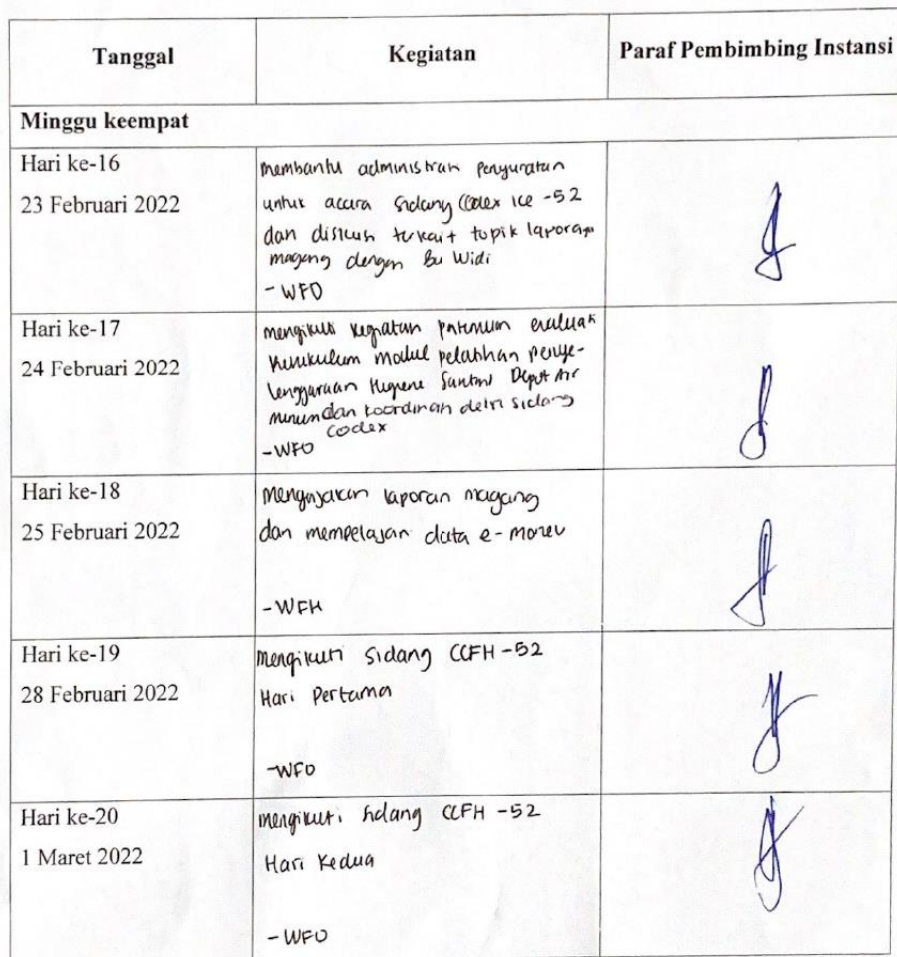 Tanggal Kegiatan Paraf Pembimbing Instansi
Minggu keempat
Hari ke-16
23 Februari 2022
membantu administrasi penyuratan
untuk acara Sidang Codex ke-52
dan diskusi terkait topik laporan
magang dengan Bu Widi
- WFO
Hari ke-17
24 Februari 2022
mengikuti kegiatan evaluasi
kurikulum modul pelatihan penye-
lenggaraan Higiene Sanitasi Depot Air
minum dan koordinasi delri sidang
codex
-WFO
Hari ke-18
25 Februari 2022
Mengerjakan laporan magang
dan mempelajari data e-monev
-WFH
Hari ke-19
28 Februari 2022
Mengikuti Sidang CCFH-52
Hari Pertama
-WFO
Hari ke-20
1 Maret 2022
mengikuti Sidang CCFH-52
Hari Kedua
- WFO